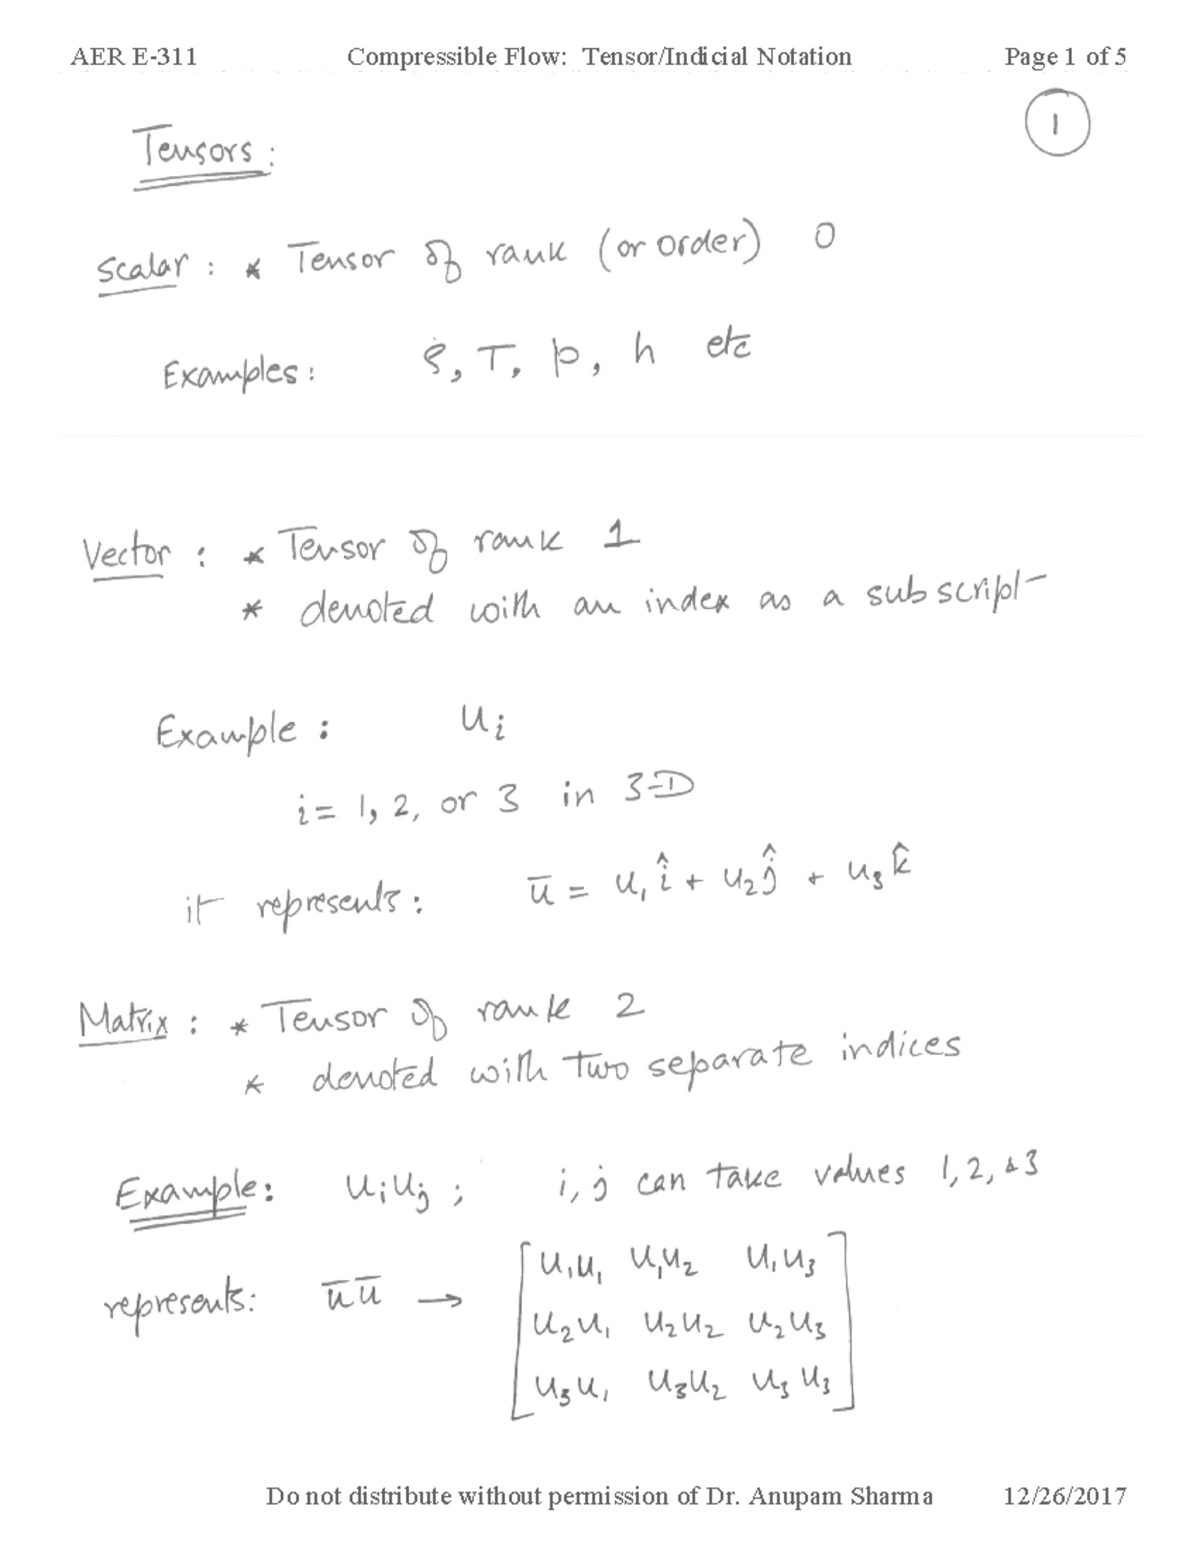 AER E-311 Compressible Flow: Tensor/Indicial Notation Page 1 of 5
1
Tensors:
Scalar: * Tensor of rank (or order) 0
Examples: ρ, T, p, h etc
Vector: * Tensor of rank 1
* denoted with an index as a subscript
Example: uᵢ
i = 1, 2, or 3 in 3-D
it represents: ū = u₁î + u₂ĵ + u₃k̂
Matrix: * Tensor of rank 2
* denoted with two separate indices
Example: uᵢuⱼ; i, j can take values 1, 2, & 3
represents: ū ū → [u₁u₁ u₁u₂ u₁u₃
u₂u₁ u₂u₂ u₂u₃
u₃u₁ u₃u₂ u₃u₃]
Do not distribute without permission of Dr. Anupam Sharma 12/26/2017